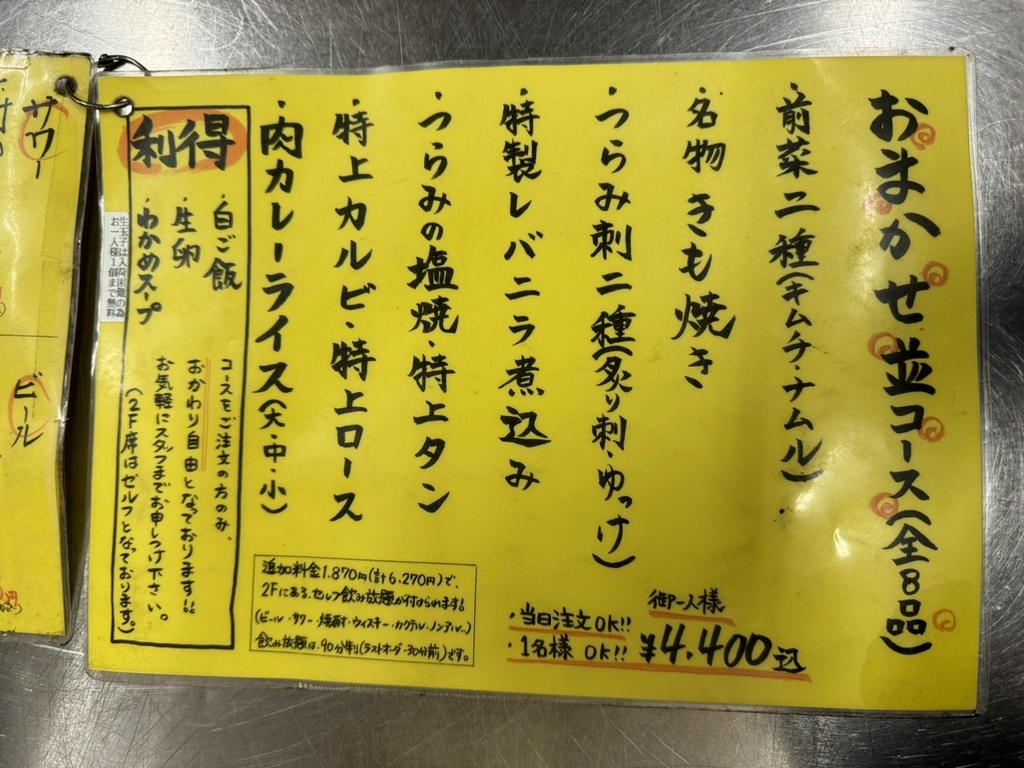 おまかせ並コース(全8品)
・前菜二種(キムチ・ナムル)
・名物きも焼き
・つらみ刺二種(炙り刺・ゆっけ)
・特製レバニラ煮込み
・つらみの塩焼・特上タン
・特上カルビ・特上ロース
・肉カレーライス(大・中・小)
御一人様
¥4,400込
・当日注文OK!!
・1名様 OK!!
追加料金1,870円(計6,270円)で、
2Fにある、セルフ飲み放題が付けられます!
(ビール・サワー・焼酎・ウィスキー・カクテル・ノンアル…)
飲み放題は、90分制(ラストオーダー30分前)です。
利得
・白ご飯
・生卵
・わかめスープ
生玉子は入荷困難の為
お一人様1個まで無料
コースをご注文の方のみ、
おかわり自由となっております!!
お気軽にスタッフまでお申しつけ下さい。
(2F席はセルフとなっております。)
サワー
ビール